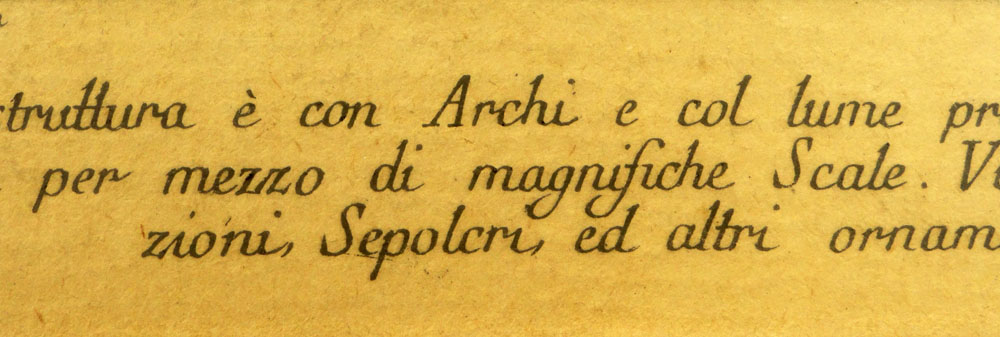 struttura è con Archi e col lume pr
per mezzo di magnifiche Scale. V
zioni, Sepolcri, ed altri ornam